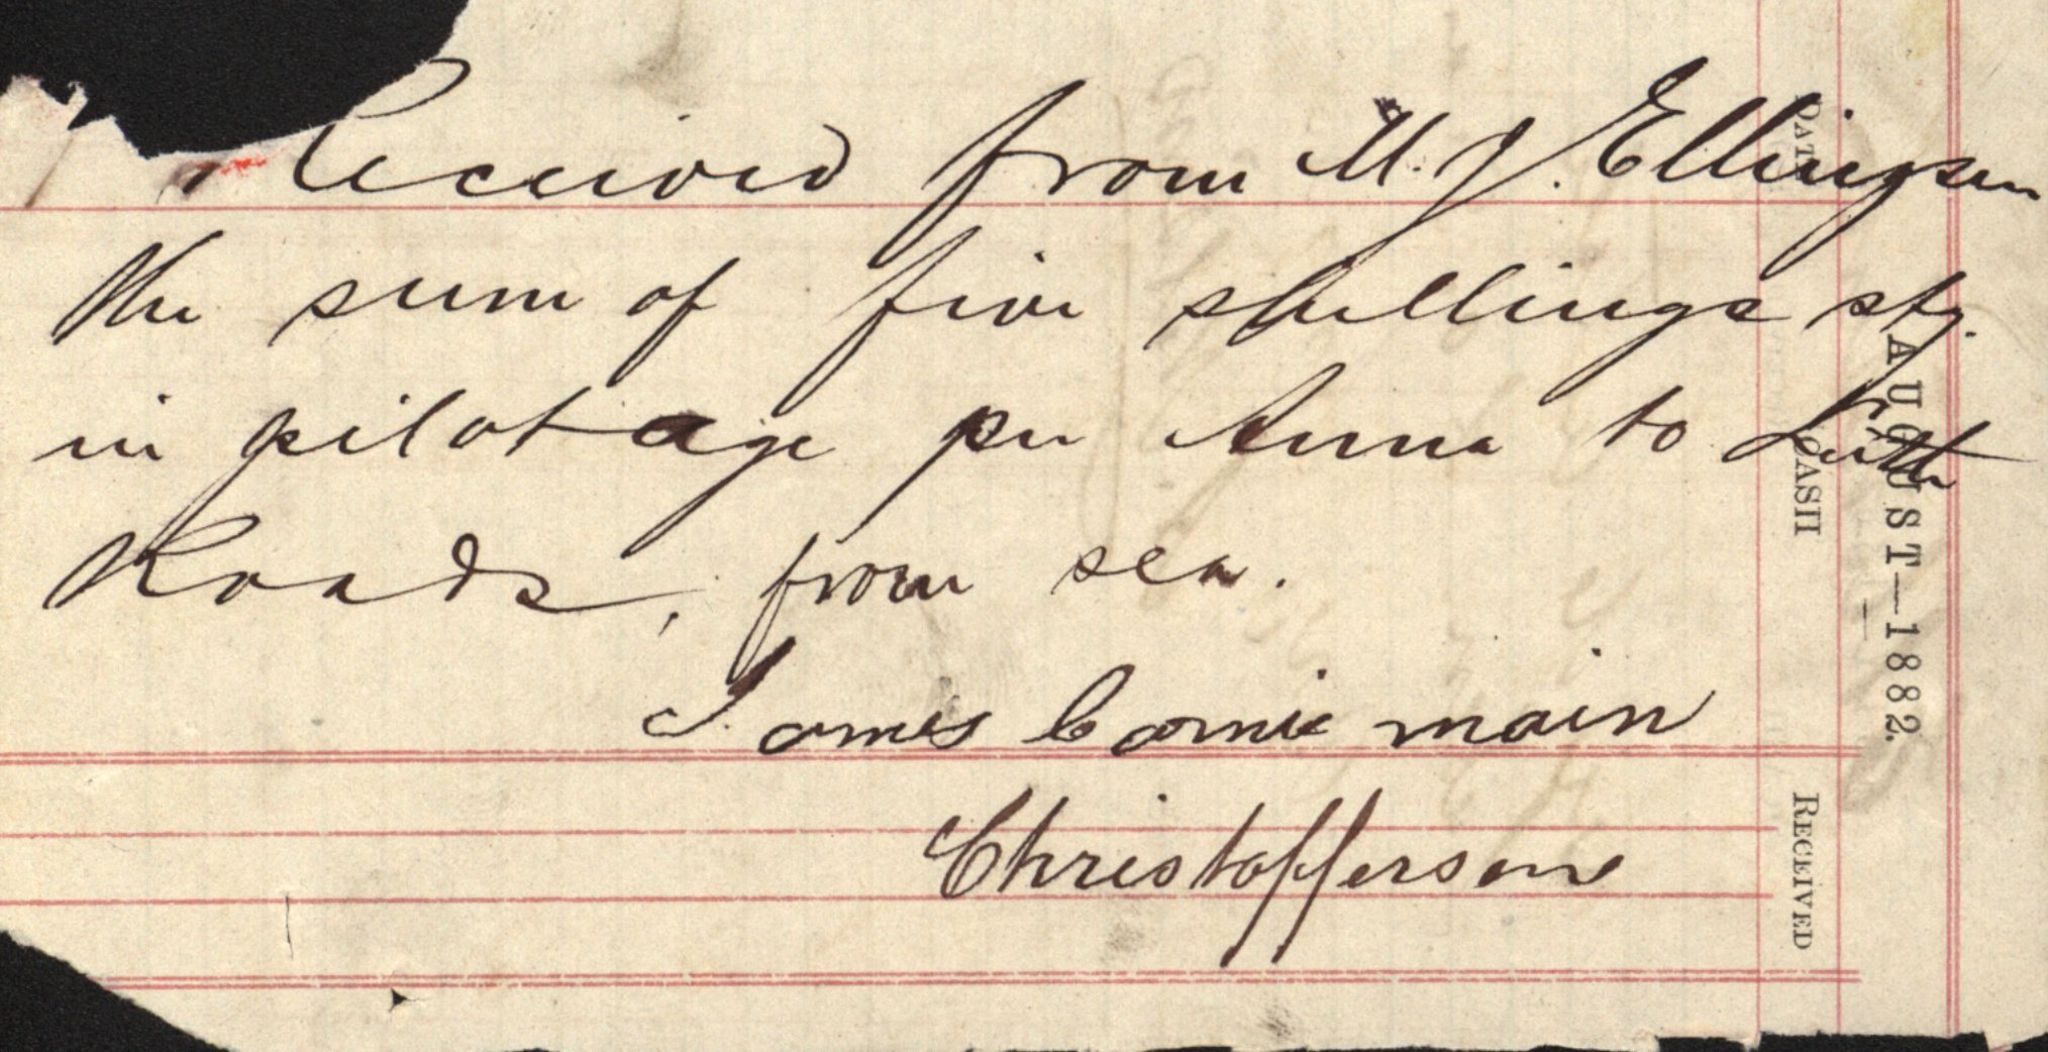 Received from M. J. Ellingsen
the sum of five shillings stg.
in pilotage per Anna to Leith
Roads, from sea.
James main
Christoffersen
DATE
CASH
RECEIVED
AUGUST—1882.